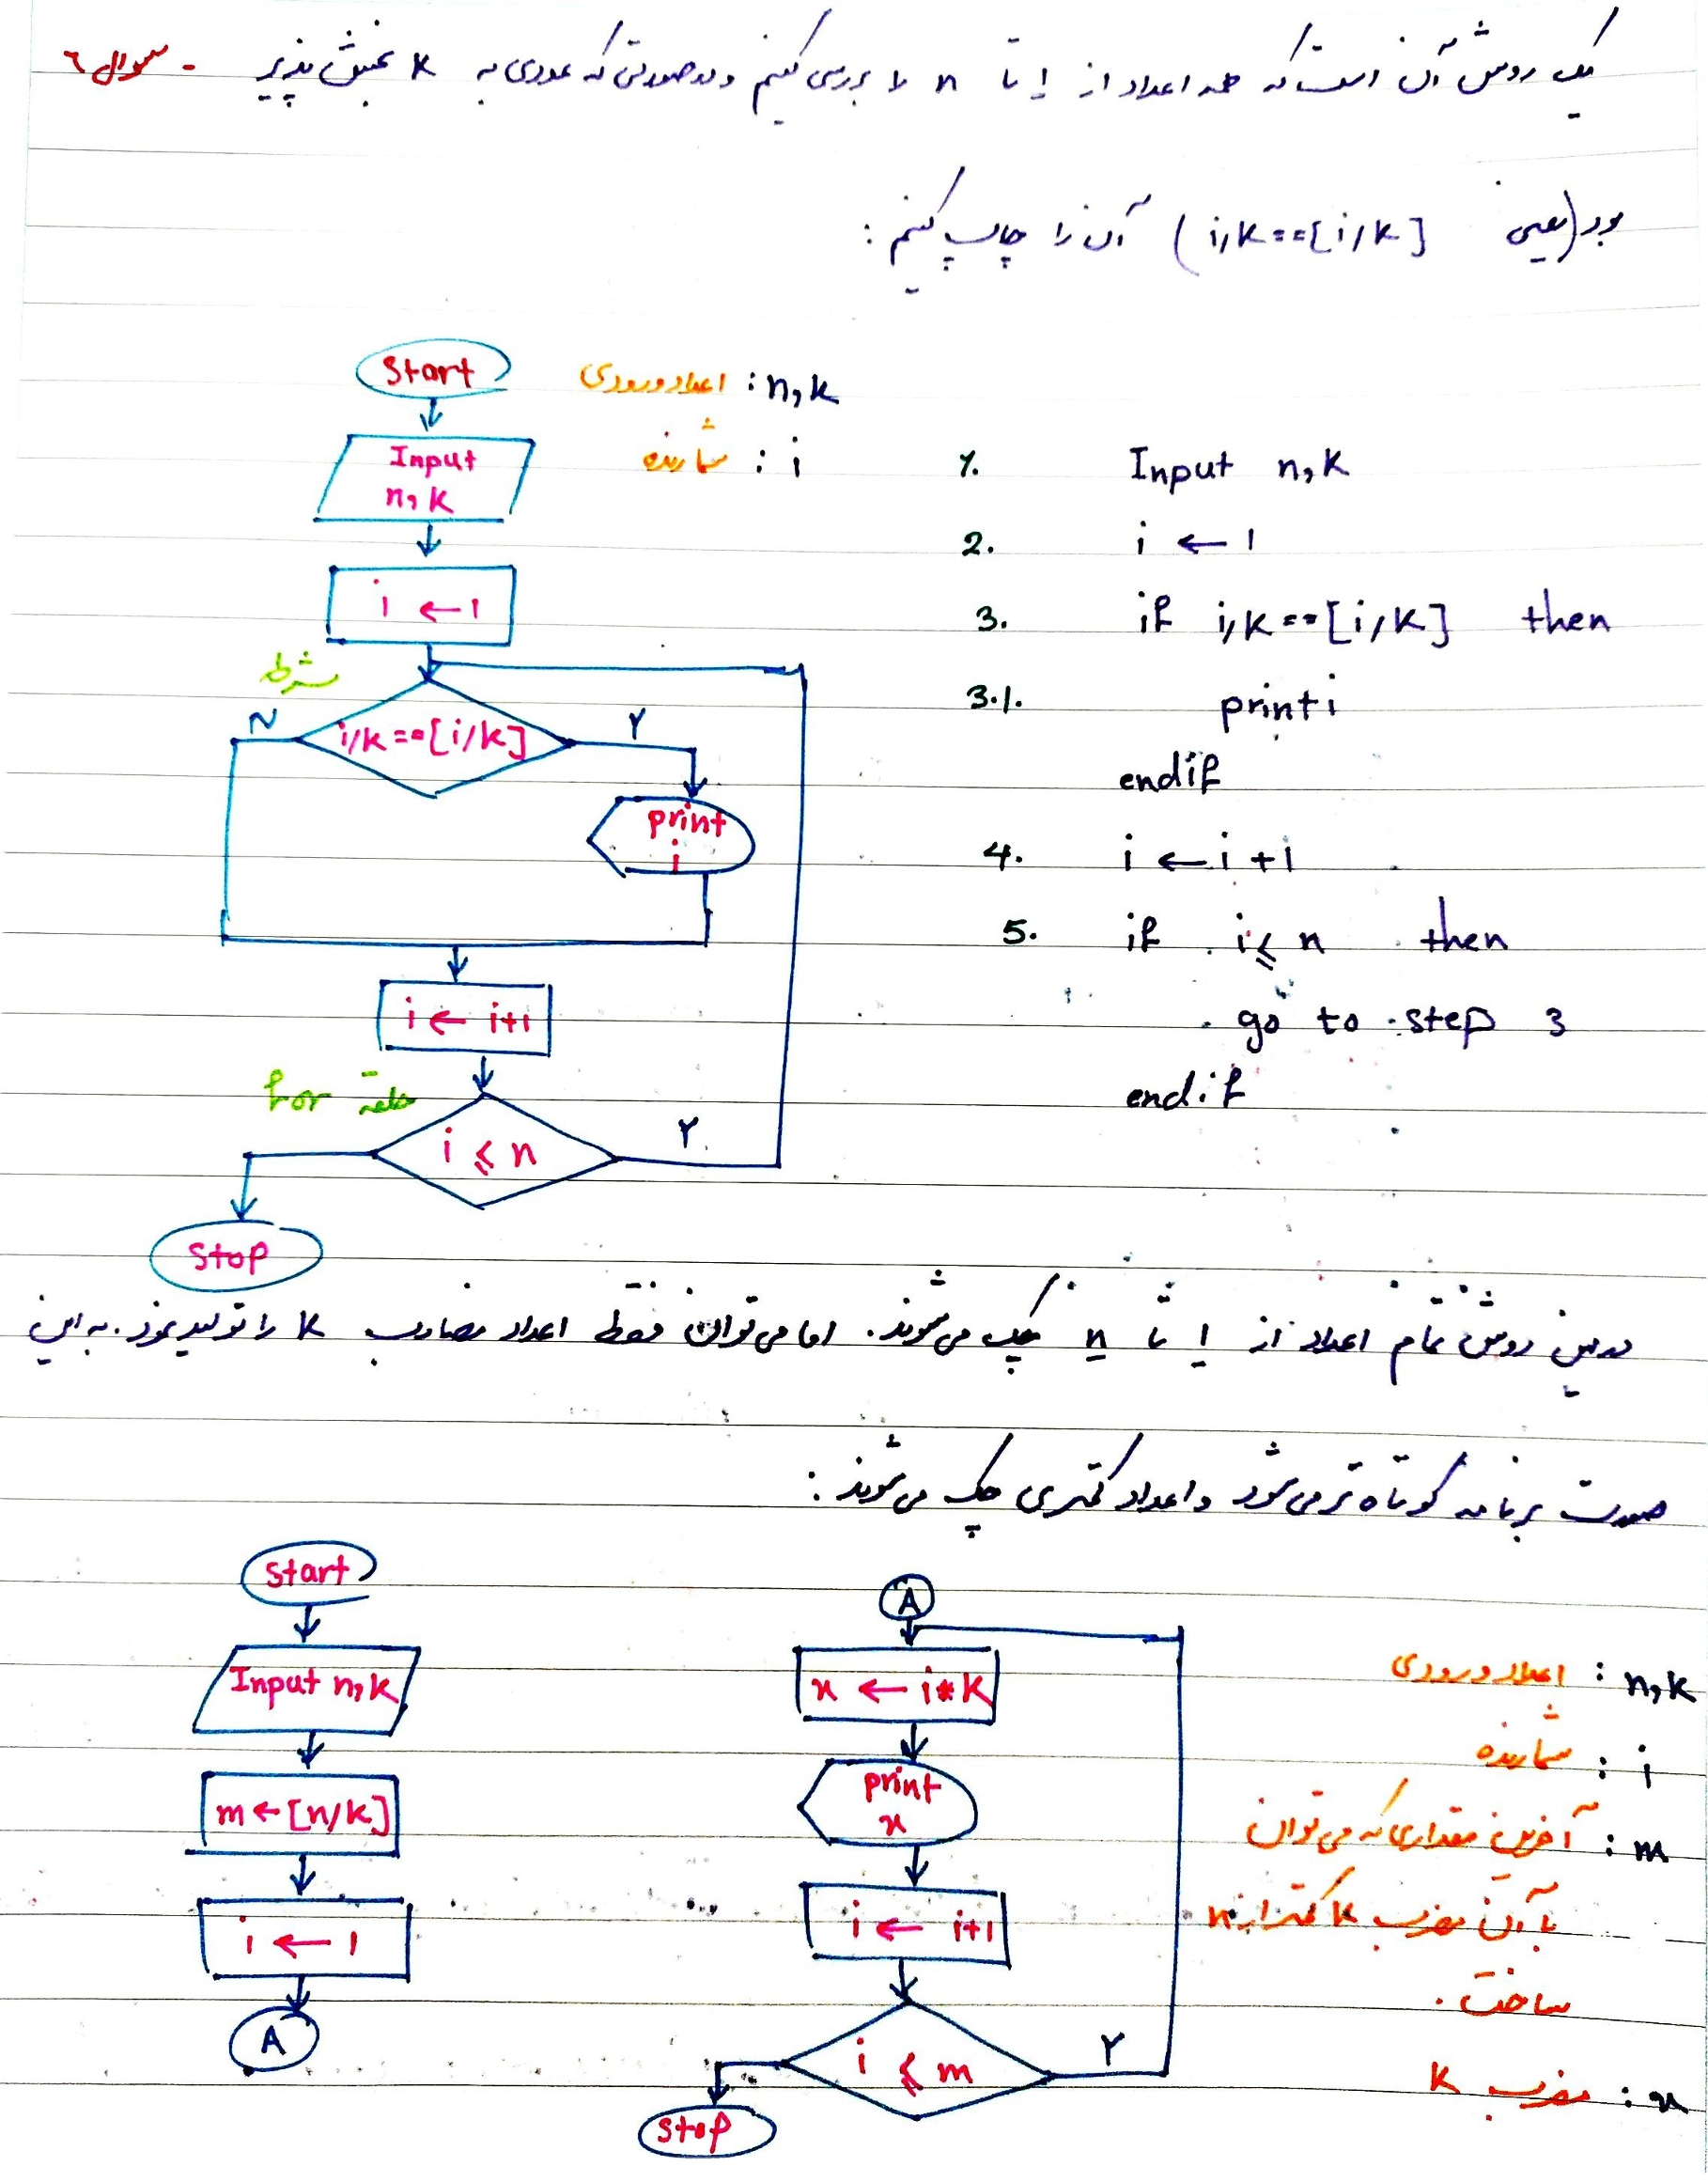 سوال ٦ - یک روش آن است که همه اعداد از 1 تا n را بررسی کنیم و در صورتی که عددی به k بخش پذیر
بود (یعنی i/k==[i/k]) آن را چاپ کنیم :
Start
n,k : اعداد ورودی
i : شمارنده
Input
n,k
i ← 1
شرط
i/k==[i/k]
N
Y
print
i
i ← i+1
حلقه for
i ≤ n
Y
Stop
1. Input n,k
2. i ← 1
3. if i/k==[i/k] then
3.1. print i
endif
4. i ← i+1
5. if i ≤ n then
go to step 3
endif
در این روش تمام اعداد از 1 تا n چک می‌شوند. اما می‌توان فقط اعداد مضارب k را تولید نمود. به این
صورت برنامه کوتاه تر می‌شود و اعداد کمتری چک می‌شوند :
Start
Input n,k
m ← [n/k]
i ← 1
A
A
x ← i*k
print
x
i ← i+1
i ≤ m
Y
Stop
n,k : اعداد ورودی
i : شمارنده
m : آخرین مقداری که می‌توان
با آن مضرب k کمتر از n
ساخت .
x : مضرب k